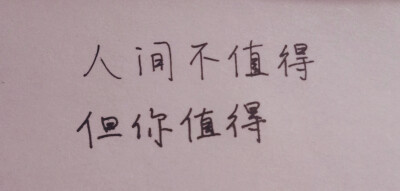 人间不值得
但你值得